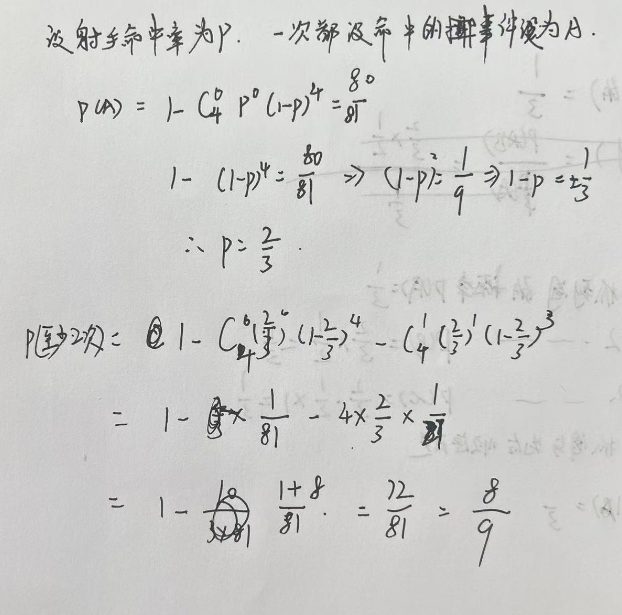 设射手命中率为P. 一次都没命中的事件设为A.
P(A) = 1- C₄⁰ P⁰ (1-p)⁴ = 80/81
1- (1-p)⁴ = 80/81 => (1-p)² = 1/9 => 1-p = ±1/3
∴ P = 2/3 .
P(至少2次) = 1 - C₄⁰ (2/3)⁰ (1-2/3)⁴ - C₄¹ (2/3)¹ (1-2/3)³
= 1 - 1/81 - 4 × 2/3 ×
= 1 - (1+8)/81 . = 72/81 = 8/9